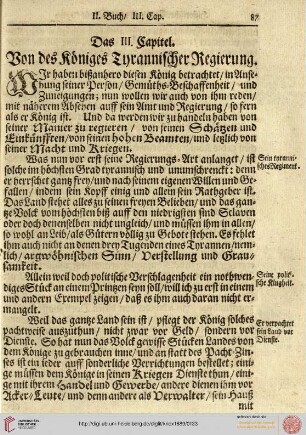 II. Buch/ III. Cap.
87
Das III. Capitel.
Von des Königes Tyrannischer Regierung.
WJr haben bißanhero diesen König betrachtet/ in Anse-
hung seiner Person/ Gemüths-Beschaffenheit/ und
Zuneigungen; nun wollen wir auch von ihm reden/
mit näherem Absehen auff sein Amt und Regierung/ so fern
als er König ist. Und da werden wir zu handeln haben von
seiner Manier zu regieren/ von seinen Schätzen und
Einkünfften/ von seinen hohen Beamten/ und letzlich von
seiner Macht und Kriegen.
Was nun vor erst seine Regierungs-Art anlanget/ ist
solche im höchsten Grad tyrannisch und unumschrenckt; denn
er herrschet gantz frey/ und nach seinem eigenen Willen und Ge-
fallen/ indem sein Kopff einig und allein sein Rathgeber ist.
Das Land stehet alles zu seinen freyen Belieben/ und das gan-
tze Volck vom höchsten biß auff den niedrigsten sind Sclaven
oder doch denenselben nicht ungleich/ und müssen ihm in allen/
so wohl an Leib/ als Gütern völlig zu Gebote stehen. Es fehlet
ihm auch nicht an denen drey Tugenden eines Tyrannen/ nem-
lich/ argwöhnischen Sinn/ Verstellung und Grau-
samkeit.
Sein tyranni-
sches Regiment.
Allein weil doch politische Verschlagenheit ein nothwen-
diges Stück an einem Printzen seyn soll/ wil ich zu erst in einem
und andern Exempel zeigen/ daß es ihm auch daran nicht er-
mangelt.
Seine politi-
sche Klugheit.
Weil das gantze Land sein ist/ pfleget der König solches
pachtweise auszuthun/ nicht zwar vor Geld/ sondern vor
Dienste. So hat nun das Volck gewisse Stücken Landes von
dem Könige zu gebrauchen inne/ und an statt des Pacht-Zin-
ses ist ein ieder auff sonderliche Verrichtungen bestellet; eini-
ge müssen dem Könige in seinen Kriegen Dienste thun/ eini-
ge mit ihrem Handel und Gewerbe/ andere dienen ihm vor
Acker-Leute/ und denn andere als Verwalter/ sein Hauß
mit
Er verpachtet
sein Land vor
Dienste.
http://digi.ub.uni-heidelberg.de/diglit/knox1689/0123